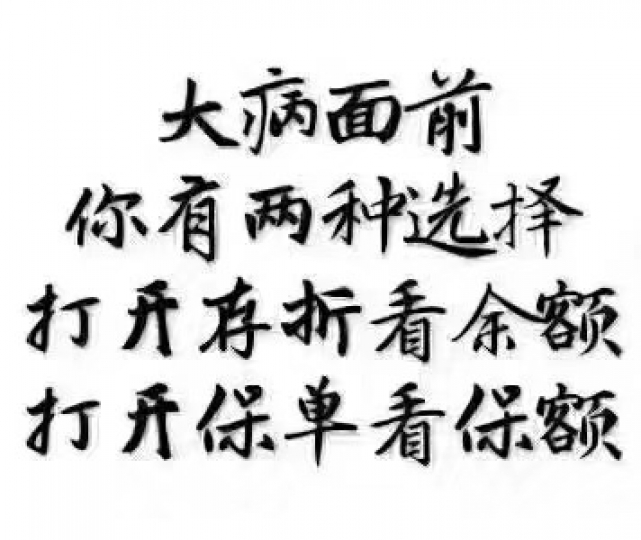 大病面前
你有两种选择
打开存折看余额
打开保单看保额